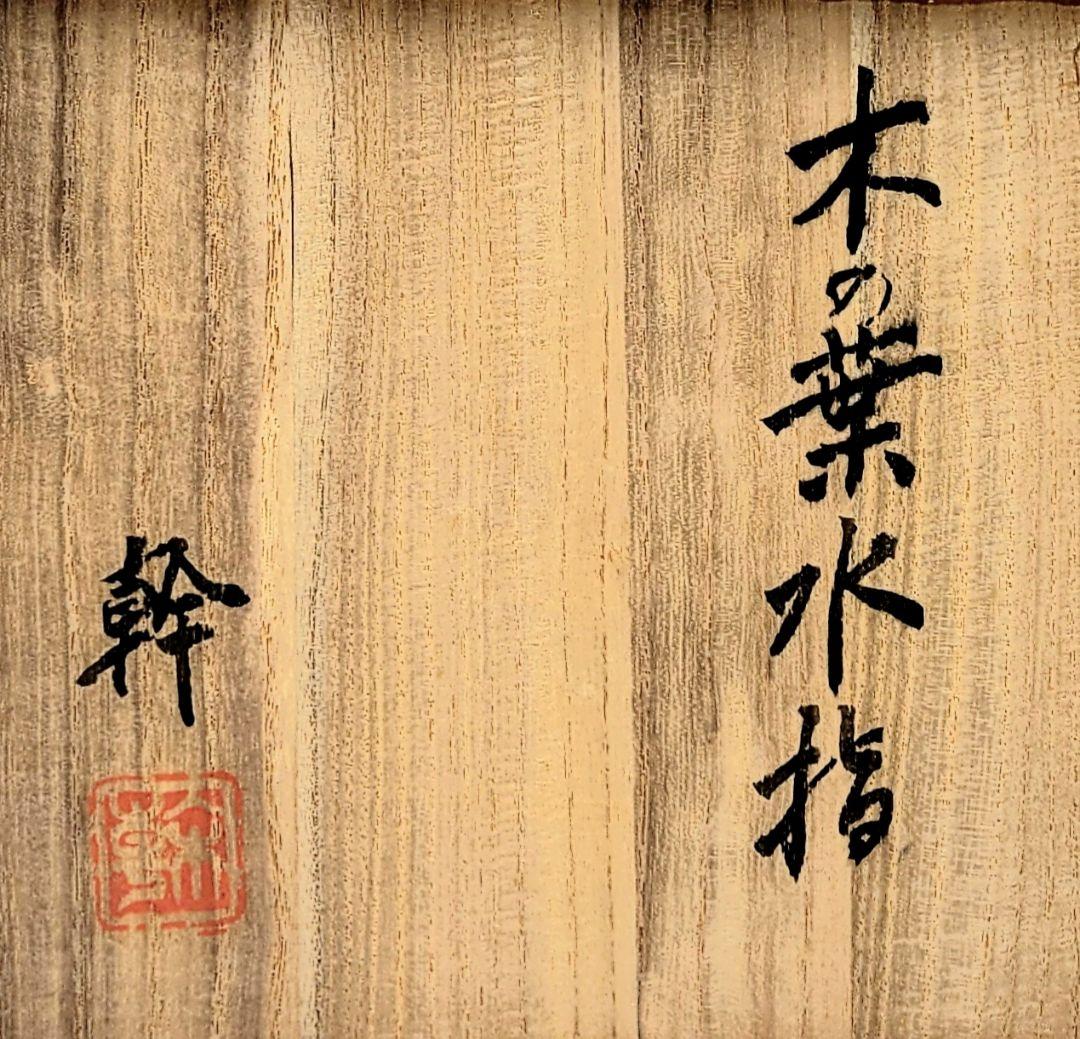 木の葉水指
幹